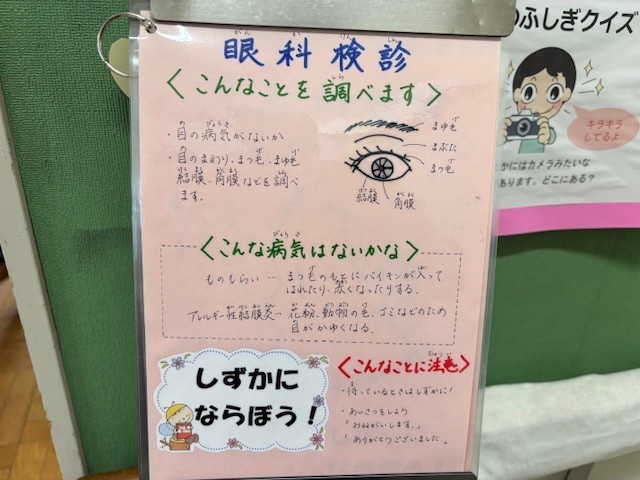 眼科検診
がん か けん しん
<こんなことを調べます>
・目の病気がないか
・目のまわり、まつ毛、まゆ毛
結膜、角膜などを調べ
ます。
まゆ毛
まぶた
まつ毛
結膜
角膜
<こんな病気はないかな>
ものもらい … まつ毛のもとにバイキンが入って
はれたり、赤くなったりする。
アレルギー性結膜炎… 花粉、動物の毛、ゴミなどのため
目がかゆくなる。
しずかに
ならぼう！
<こんなことに注意>
・待っているときはしずかに！
・あいさつをしよう
「おねがいします。」
「ありがとうございました。」
ふしぎクイズ
キラキラ
してるよ
かにはカメラみたいな
あります。どこにある？